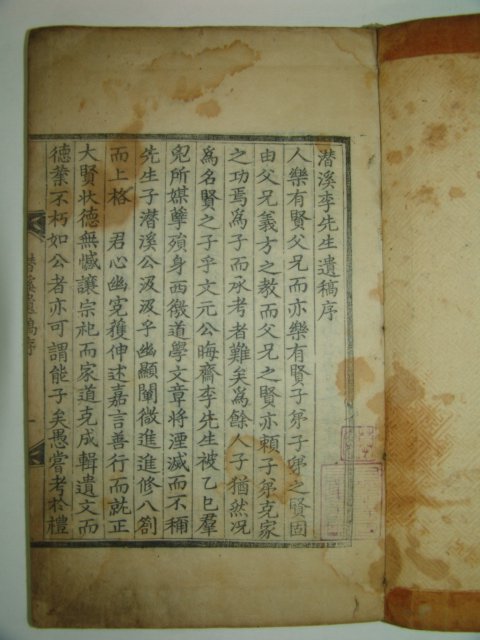 潜溪李先生遺稿序
人樂有賢父兄而亦樂有賢子弟子弟之賢固
由父兄義方之教而父兄之賢亦賴子弟克家
之功焉爲子而承考者難矣爲餘人子猶然况
爲名賢之子乎文元公晦齋李先生被乙巳羣
兇所媒孽殞身西徼道學文章將湮滅而不稱
先生子潜溪公汲汲乎幽顯闡微進進修八劄
而上格　君心幽寃獲伸述嘉言善行而就正
大賢狀德無憾讓宗祀而家道克成輯遺文而
德業不朽如公者亦可謂能子矣愚嘗考於禮
潜溪遺稿序
一